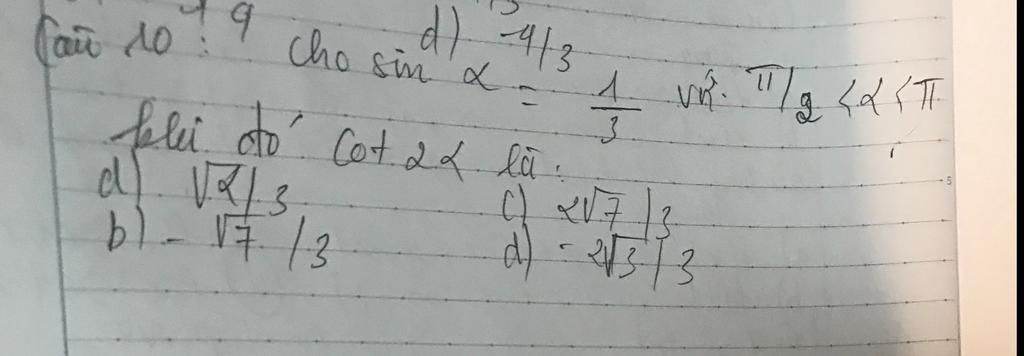 d) -4/3
Câu 10: Cho sin α = 1/3 với π/2 < α < π
khi đó cot 2α là:
a) √2/3 c) 2√7/3
b) -√7/3 d) -2√3/3